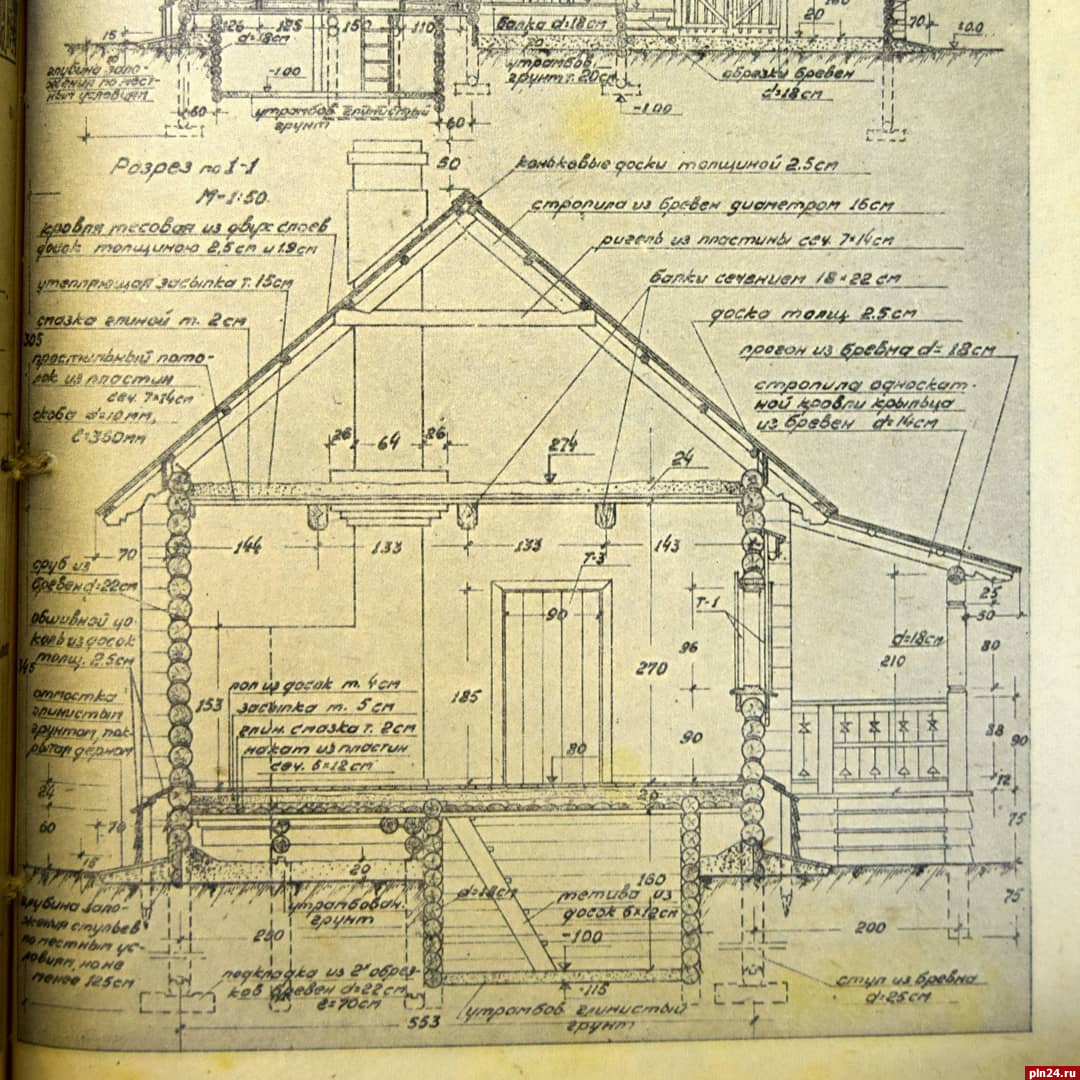 126 125 150 110
балка d=18см
20
160
70
±0.0
15
d=18см
глубина зало-
жения по мест-
ным условиям
-1.00
утрамбов.
грунт т. 20см
обрезки бревен
d=18см
-1.00
60
утрамбов глинистый
грунт
60
Разрез по 1-1
М-1:50.
50
коньковые доски толщиной 2.5см
стропила из бревен диаметром 16см
кровля тесовая из двух слоев
досок толщиною 2,5см и 1.9см
ригель из пластины сеч. 7×14см
утепляющая засыпка т. 15см
балки сечением 18×22см
смазка глиной т. 2см
доска толщ 2.5см
305
простильный пото-
лок из пластин
сеч. 7×14см
скоба d=10мм,
ℓ=350мм
прогон из бревна d=18см
стропила односкат-
ной кровли крыльца
из бревен d=14см
26 64 26
274
24
70
144 133 133 143
Т-3
сруб из
бревен d=22см
90
Т-1
25
50
обшивной цо-
коль из досок
толщ. 2.5см
96
d=18см
210
80
270
145
отмостка
глинистым
грунтом, пок-
рытая дерном
153
185
пол из досок т. 4см
засыпка т. 5см
глин. смазка т. 2см
накат из пластин
сеч. 6×12см
90
80
38
90
24
20
12
60
70
75
15
20
утрамбован.
грунт
d=18см
160
тетива из
досок 6×12см
75
глубина зало-
жения стульев
по местным ус-
ловиям, но не
менее 125см
250
-100
200
подкладка из 2х обрез-
ков бревен d=22см
ℓ=70см
-115
стул из бревна
d=25см
553
утрамбов глинистый
грунт
pln24.ru